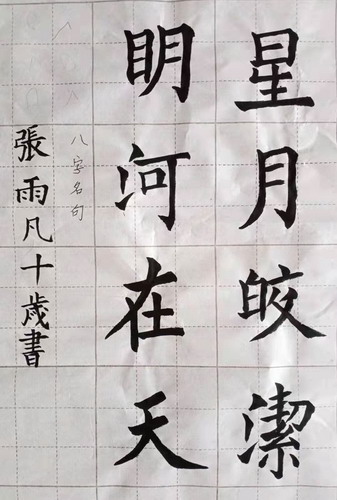 星月皎潔
明河在天
八字名句
張雨凡十歲書